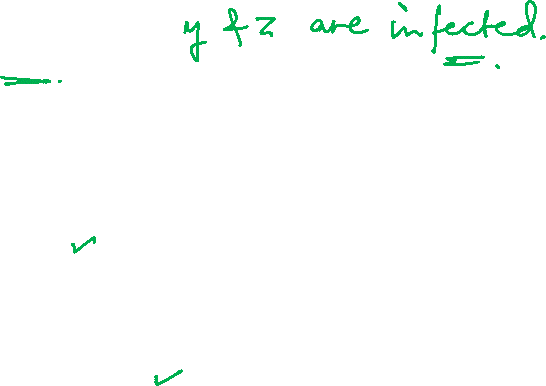 y & z are infected.